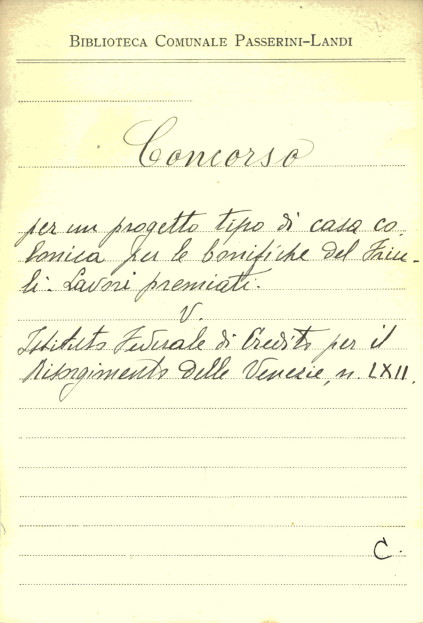 BIBLIOTECA COMUNALE PASSERINI-LANDI
Concorso
per un progetto tipo di casa co-
lonica per le bonifiche del Friu-
li. Lavori premiati.
V.
Istituto Federale di Credito per il
Risorgimento delle Venezie, n. LXII.
C.